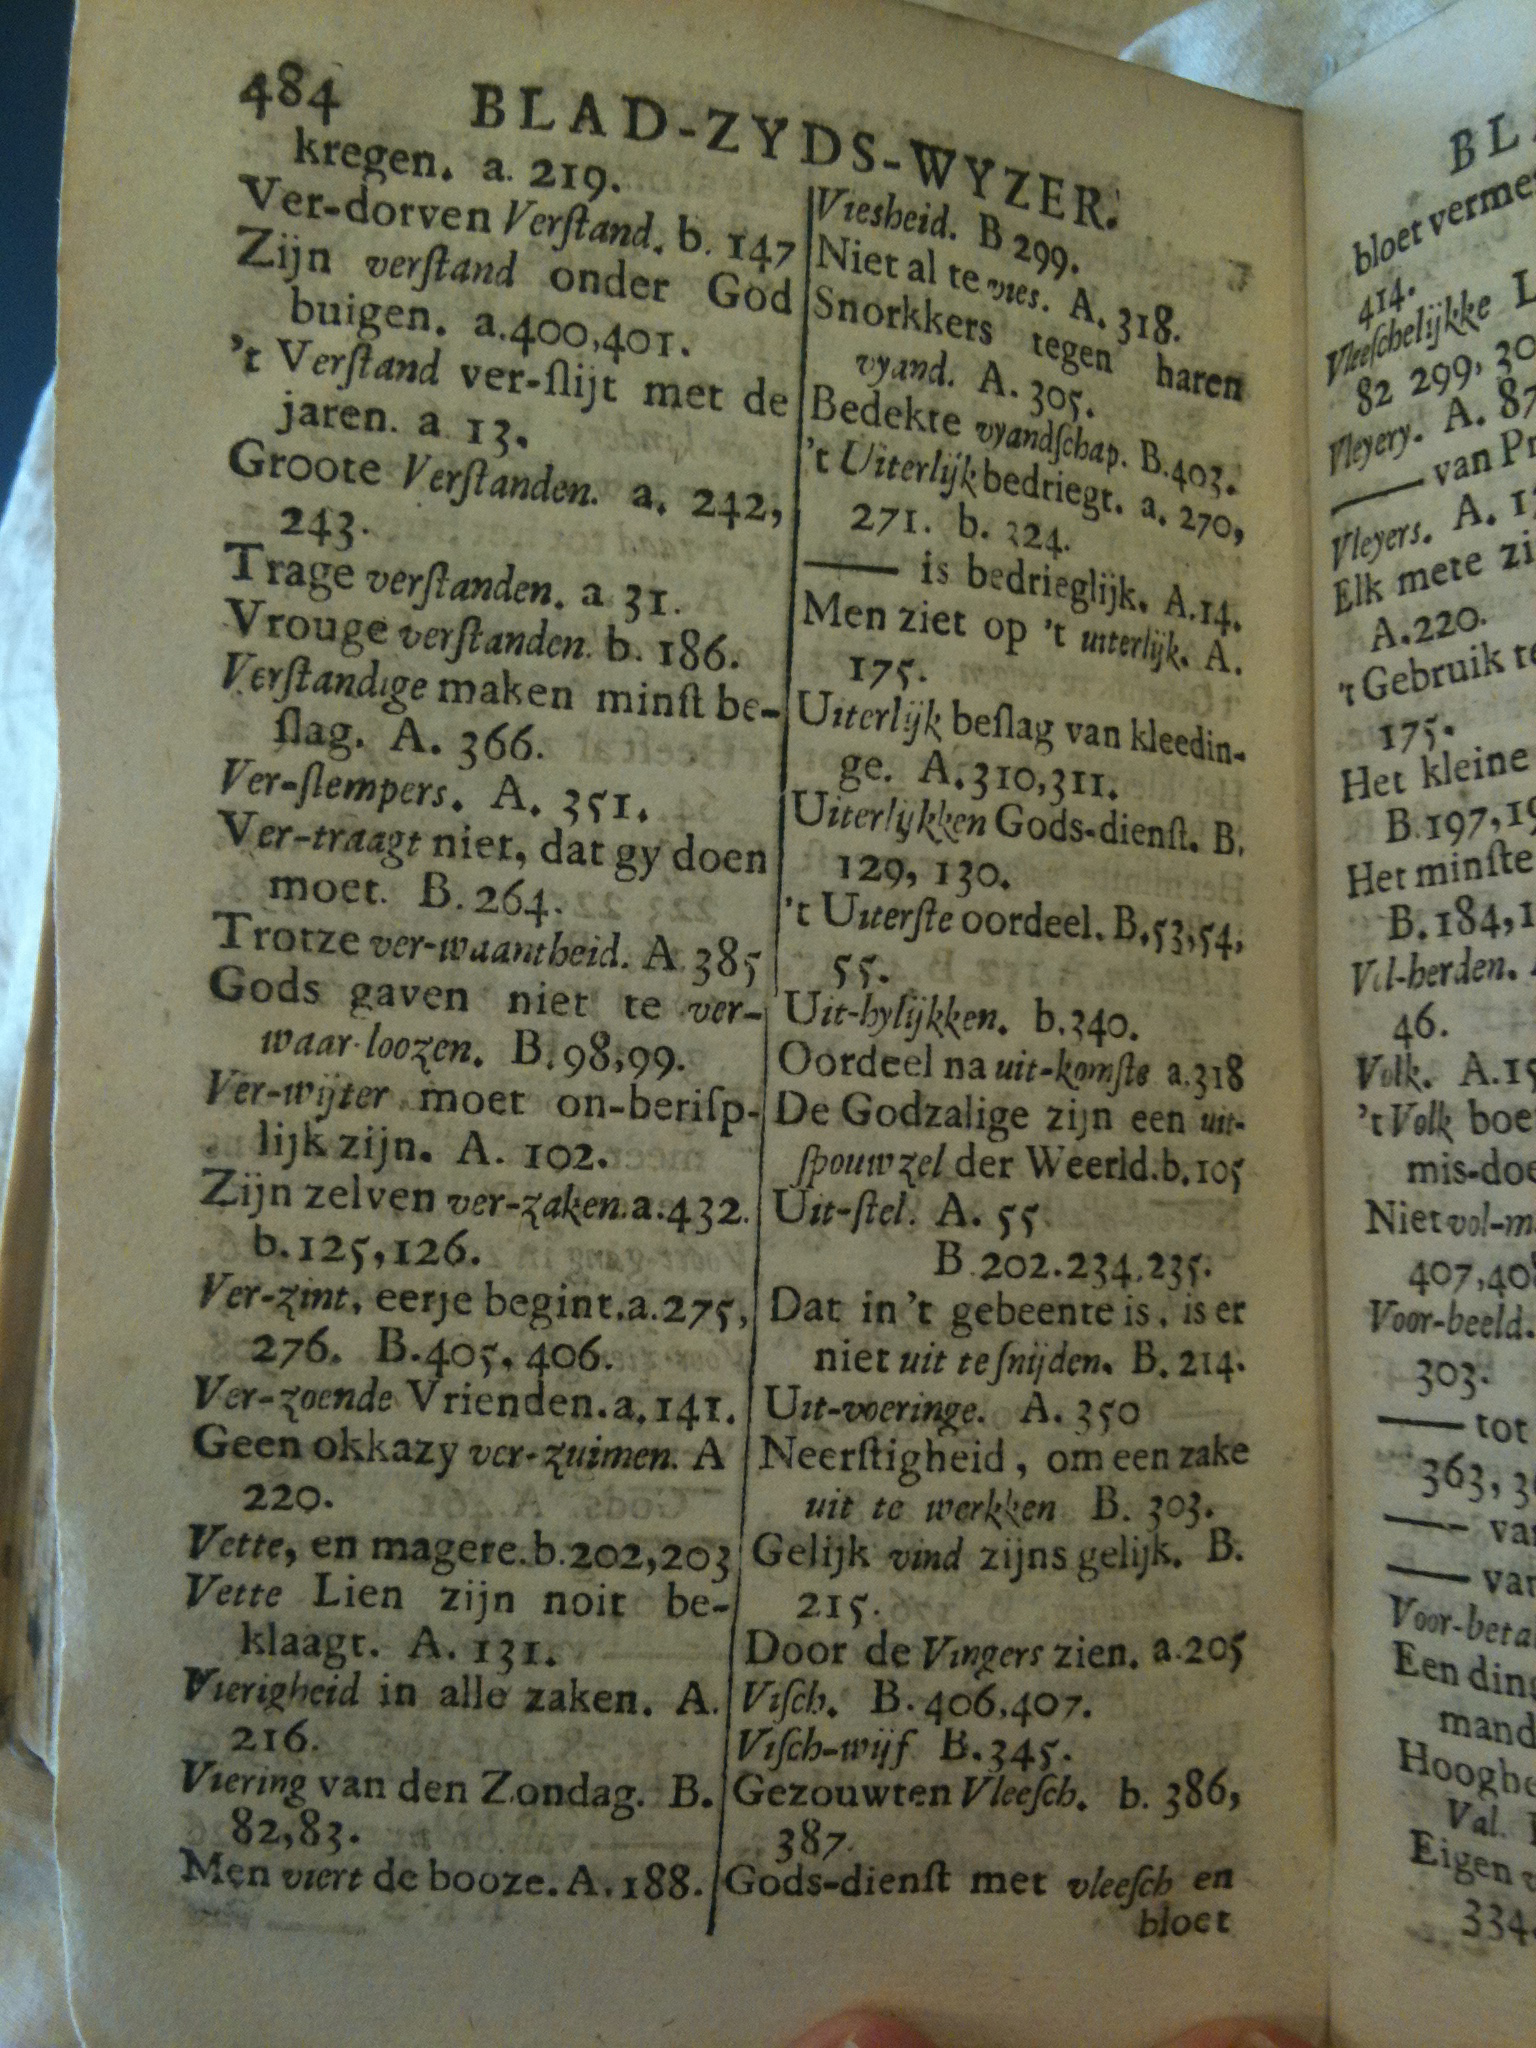 484 BLAD-ZYDS-WYZER.
kregen. a. 219.
Ver-dorven Verſtand. b. 147
Zijn verſtand onder God
buigen. a.400,401.
't Verſtand ver-ſlijt met de
jaren. a 13.
Groote Verſtanden. a. 242,
243.
Trage verſtanden. a 31.
Vrouge verſtanden. b. 186.
Verſtandige maken minſt be-
ſlag. A. 366.
Ver-ſlempers. A. 351.
Ver-traagt niet, dat gy doen
moet. B. 264.
Trotze ver-waantheid. A 385
Gods gaven niet te ver-
waar-loozen. B.98,99.
Ver-wijter moet on-beriſp-
lijk zijn. A. 102.
Zijn zelven ver-zaken.a.432.
b.125,126.
Ver-zint, eerje begint.a.275,
276. B.405,406.
Ver-zoende Vrienden.a.141.
Geen okkazy ver-zuimen. A
220.
Vette, en magere.b.202,203
Vette Lien zijn noit be-
klaagt. A. 131.
Vierigheid in alle zaken. A.
216.
Viering van den Zondag. B.
82,83.
Men viert de booze. A.188.
Viesheid. B 299.
Niet al te vies. A. 318.
Snorkkers tegen haren
vyand. A. 305.
Bedekte vyandſchap. B.403.
't Uiterlijk bedriegt. a. 270,
271. b. 324.
—— is bedrieglijk. A.14.
Men ziet op 't uiterlijk. A.
175.
Uiterlijk beſlag van kleedin-
ge. A.310,311.
Uiterlijkken Gods-dienſt. B.
129, 130.
't Uiterſte oordeel. B.53,54,
55.
Uit-hylijkken. b.340.
Oordeel na uit-komſte a.318
De Godzalige zijn een uit-
ſpouwzel der Weerld.b.105
Uit-ſtel. A. 55
B.202.234.235.
Dat in 't gebeente is, is er
niet uit te ſnijden. B. 214.
Uit-voeringe. A. 350
Neerſtigheid, om een zake
uit te werkken B. 303.
Gelijk vind zijns gelijk. B.
215.
Door de Vingers zien. a.205
Viſch. B.406,407.
Viſch-wijf B.345.
Gezouwten Vleeſch. b. 386,
387.
Gods-dienſt met vleeſch en
bloet
BL
bloet verme
414.
Vleeſchelijkke L
82 299, 30
Vleyery. A. 87
—— van Pr
Vleyers. A. 1
Elk mete zi
A.220.
't Gebruik te
175.
Het kleine
B.197,19
Het minſte
B.184,1
Vol-herden.
46.
Volk. A.15
't Volk boe
mis-doe
Niet vol-m
407,408
Voor-beeld.
303.
—— tot
363, 36
—— van
—— van
Voor-beta
Een ding
mand
Hooghe
Val.
Eigen v
334.